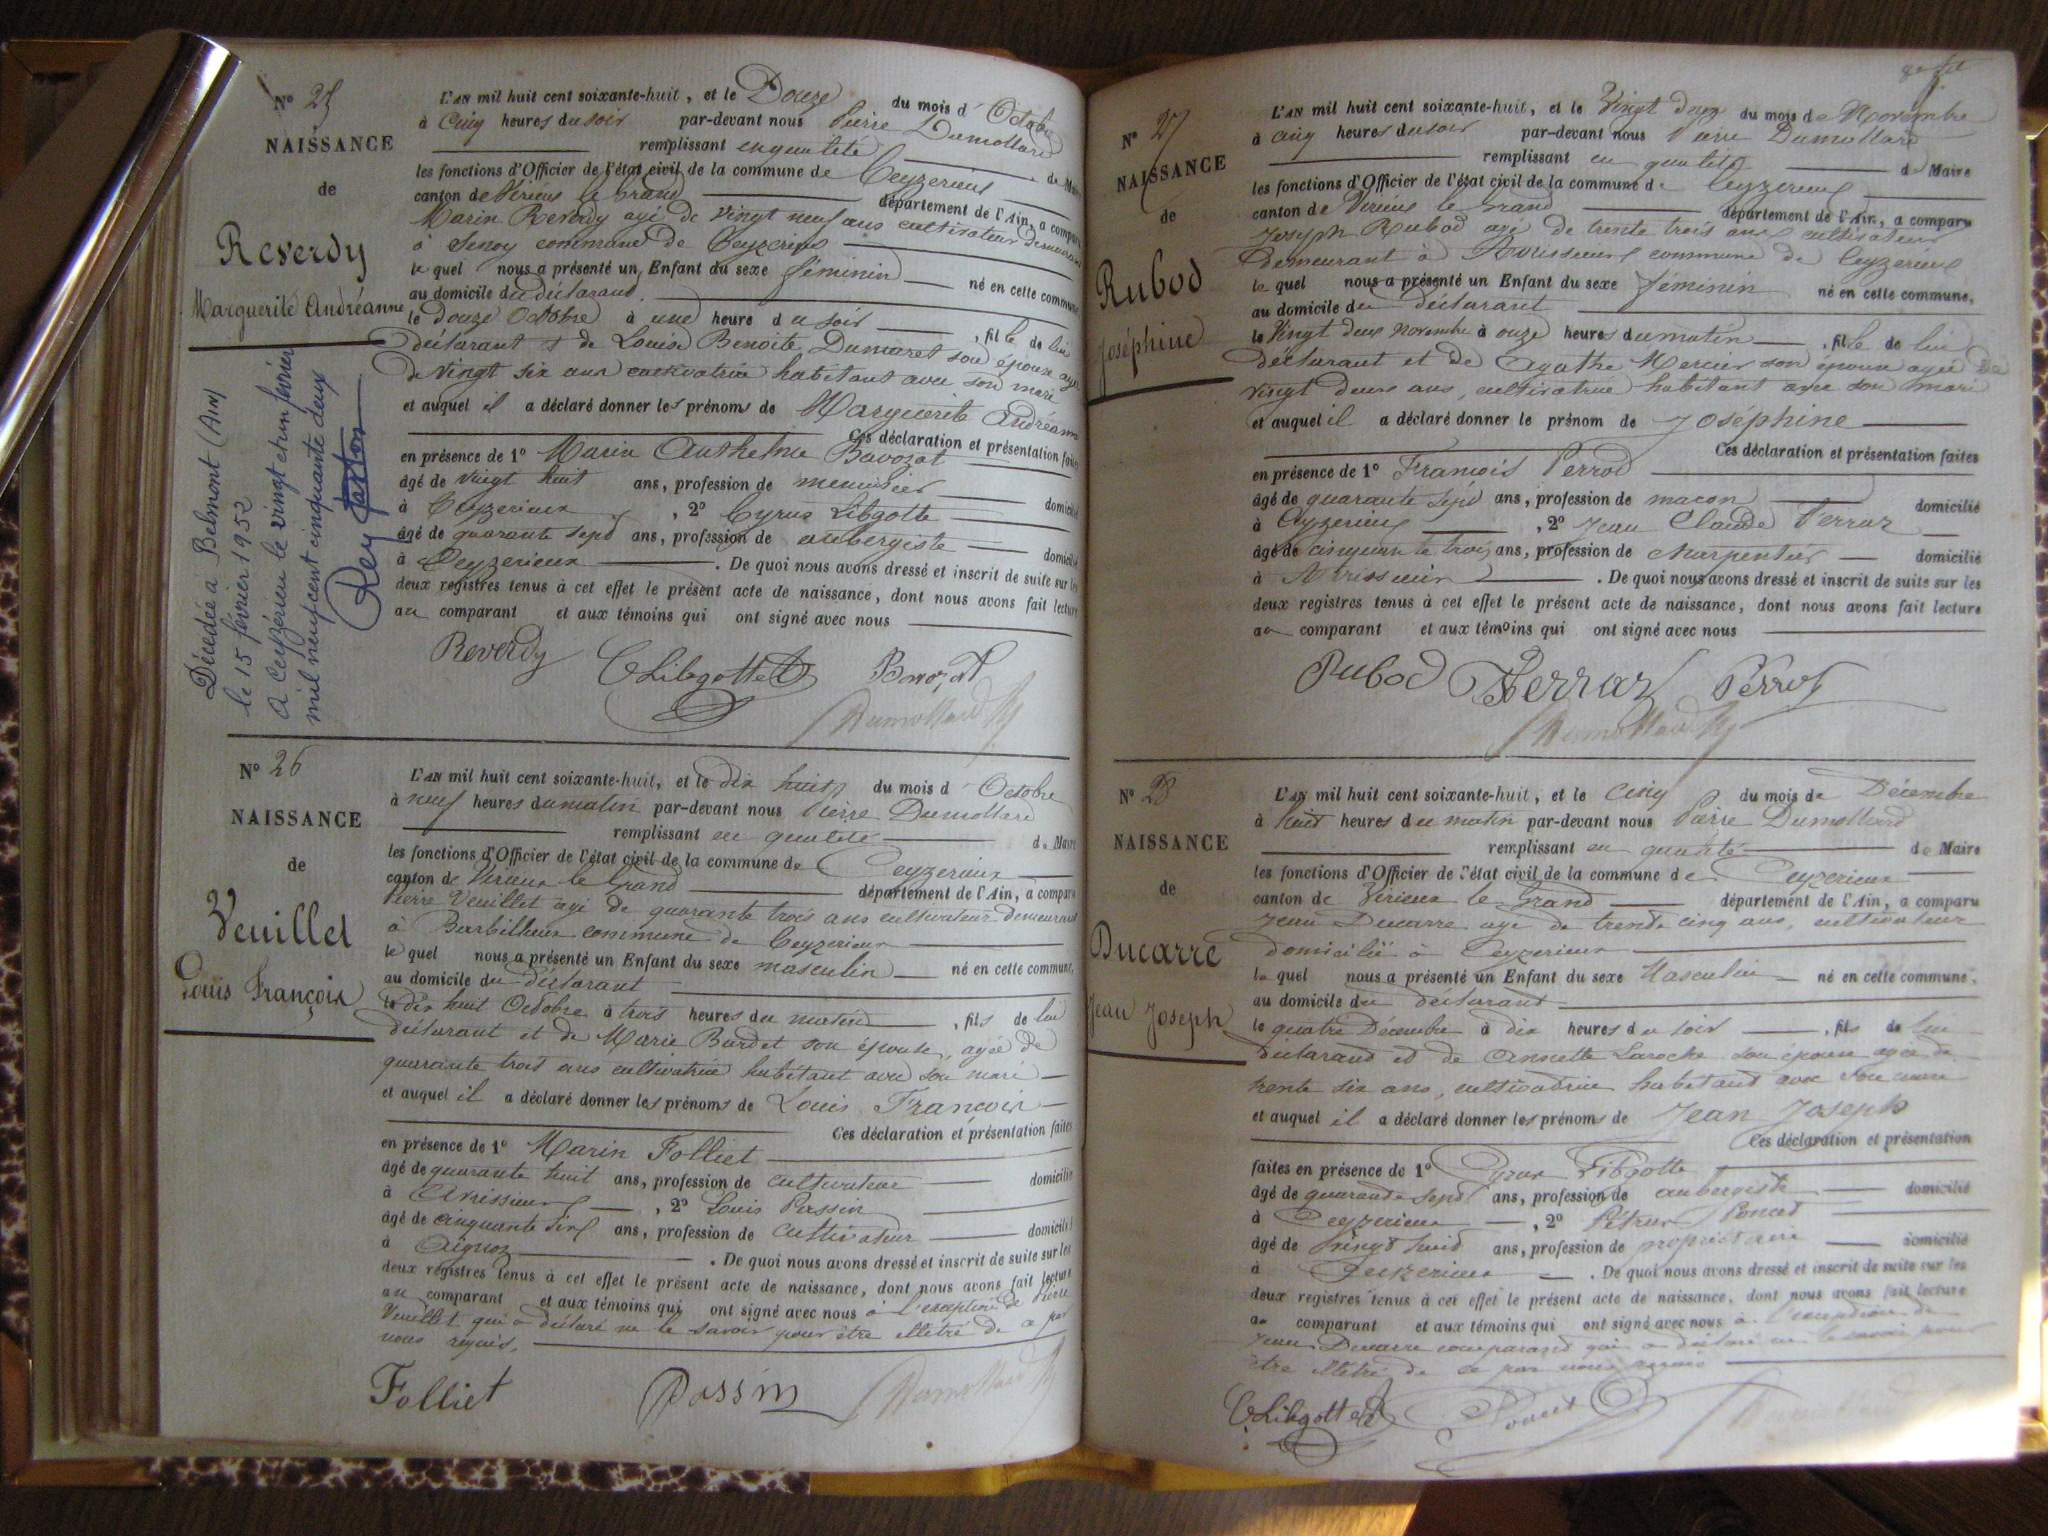 N° 25
NAISSANCE
de
Reverdy
Marguerite Andréanne
Décédée à Belmont (Ain)
le 15 février 1952
A Ceyzérieu le vingt et un février
mil neuf cent cinquante deux
L'AN mil huit cent soixante-huit, et le Douze du mois d'Octobre
à Cinq heures du soir par-devant nous Pierre Dumollard
remplissant en qualité de Maire
les fonctions d'Officier de l'état civil de la commune de Ceyzerieu
canton de Virieu le Grand département de l'Ain, a comparu
Marin Reverdy agé de vingt neuf ans cultivateur demeurant
à Senoy commune de Ceyzerieu
le quel nous a présenté un Enfant du sexe féminin né en cette commune,
au domicile du déclarant
le douze Octobre à une heure du soir, fille de lui
déclarant & de Louise Benoite Dumaret son épouse agée
de vingt six ans cultivatrice habitant avec son mari
et auquel il a déclaré donner les prénoms de Marguerite Andréanne
Ces déclaration et présentation faites
en présence de 1° Marin Anthelme Bavozat
âgé de vingt huit ans, profession de menuisier domicilié
à Ceyzerieux, 2° Cyrus Libgotte
âgé de quarante sept ans, profession de aubergiste domicilié
à Ceyzerieux. De quoi nous avons dressé et inscrit de suite sur les
deux registres tenus à cet effet le présent acte de naissance, dont nous avons fait lecture
au comparant et aux témoins qui ont signé avec nous
Reverdy CLibgotte Bavozat
Dumollard
N° 26
NAISSANCE
de
Veuillet
Louis François
L'AN mil huit cent soixante-huit, et le dix huit du mois d'Octobre
à neuf heures du matin par-devant nous Pierre Dumollard
remplissant en qualité de Maire
les fonctions d'Officier de l'état civil de la commune de Ceyzerieux
canton de Virieux le Grand département de l'Ain, a comparu
Pierre Veuillet agé de quarante trois ans cultivateur demeurant
à Barbilleux commune de Ceyzerieux
le quel nous a présenté un Enfant du sexe masculin né en cette commune,
au domicile du déclarant
le dix huit Octobre à trois heures du matin, fils de lui
déclarant et de Marie Burdet son épouse, agée de
quarante trois ans cultivatrice habitant avec son mari
et auquel il a déclaré donner les prénoms de Louis François
Ces déclaration et présentation faites
en présence de 1° Marin Folliet
âgé de quarante huit ans, profession de cultivateur domicilié
à Avrissieu, 2° Louis Passin
âgé de cinquante cinq ans, profession de cultivateur domicilié
à Aignoz. De quoi nous avons dressé et inscrit de suite sur les
deux registres tenus à cet effet le présent acte de naissance, dont nous avons fait lecture
au comparant et aux témoins qui ont signé avec nous à l'exception de Pierre
Veuillet qui a déclaré ne le savoir pour être illétré de ce par
nous requis.
Folliet Passin Dumollard
N° 27
NAISSANCE
de
Rubod
Joséphine
L'AN mil huit cent soixante-huit, et le Vingt deux du mois de Novembre
à cinq heures du soir par-devant nous Pierre Dumollard
remplissant en qualité de Maire
les fonctions d'Officier de l'état civil de la commune de Ceyzerieu
canton de Virieu le Grand département de l'Ain, a comparu
Joseph Rubod agé de trente trois ans cultivateur
demeurant à Avrissieu commune de Ceyzerieu
le quel nous a présenté un Enfant du sexe féminin né en cette commune,
au domicile du déclarant
le Vingt deux novembre à onze heures du matin, fille de lui
déclarant et de Agathe Mercier son épouse agée de
vingt deux ans, cultivatrice habitant avec son mari
et auquel il a déclaré donner le prénom de Joséphine
Ces déclaration et présentation faites
en présence de 1° François Perrod
âgé de quarante sept ans, profession de maçon domicilié
à Ceyzerieu, 2° Jean Claude Ferraz
âgé de cinquante trois ans, profession de charpentier domicilié
à Avrissieu. De quoi nous avons dressé et inscrit de suite sur les
deux registres tenus à cet effet le présent acte de naissance, dont nous avons fait lecture
au comparant et aux témoins qui ont signé avec nous
Rubod Ferraz Perrod
Dumollard
N° 28
NAISSANCE
de
Ducarre
Jean Joseph
L'AN mil huit cent soixante-huit, et le Cinq du mois de Décembre
à huit heures du matin par-devant nous Pierre Dumollard
remplissant en qualité de Maire
les fonctions d'Officier de l'état civil de la commune de Ceyzerieux
canton de Virieux le Grand département de l'Ain, a comparu
Jean Ducarre agé de trente cinq ans, cultivateur
domicilié à Ceyzerieux
le quel nous a présenté un Enfant du sexe Masculin né en cette commune,
au domicile du déclarant
le quatre Décembre à dix heures du soir, fils de lui
déclarant et de Annette Laroche son épouse agée de
trente six ans, cultivatrice habitant avec son mari
et auquel il a déclaré donner les prénoms de Jean Joseph
Ces déclaration et présentation
faites en présence de 1° Cyrus Libgotte
âgé de quarante sept ans, profession de aubergiste domicilié
à Ceyzerieux, 2° Pétrus Poncet
âgé de Vingt huit ans, profession de propriétaire domicilié
à Ceyzerieux. De quoi nous avons dressé et inscrit de suite sur les
deux registres tenus à cet effet le présent acte de naissance, dont nous avons fait lecture
au comparant et aux témoins qui ont signé avec nous à l'exception de
Jean Ducarre comparant qui a déclaré ne le savoir pour
être illétré de ce par nous requis
CLibgotte Poncet